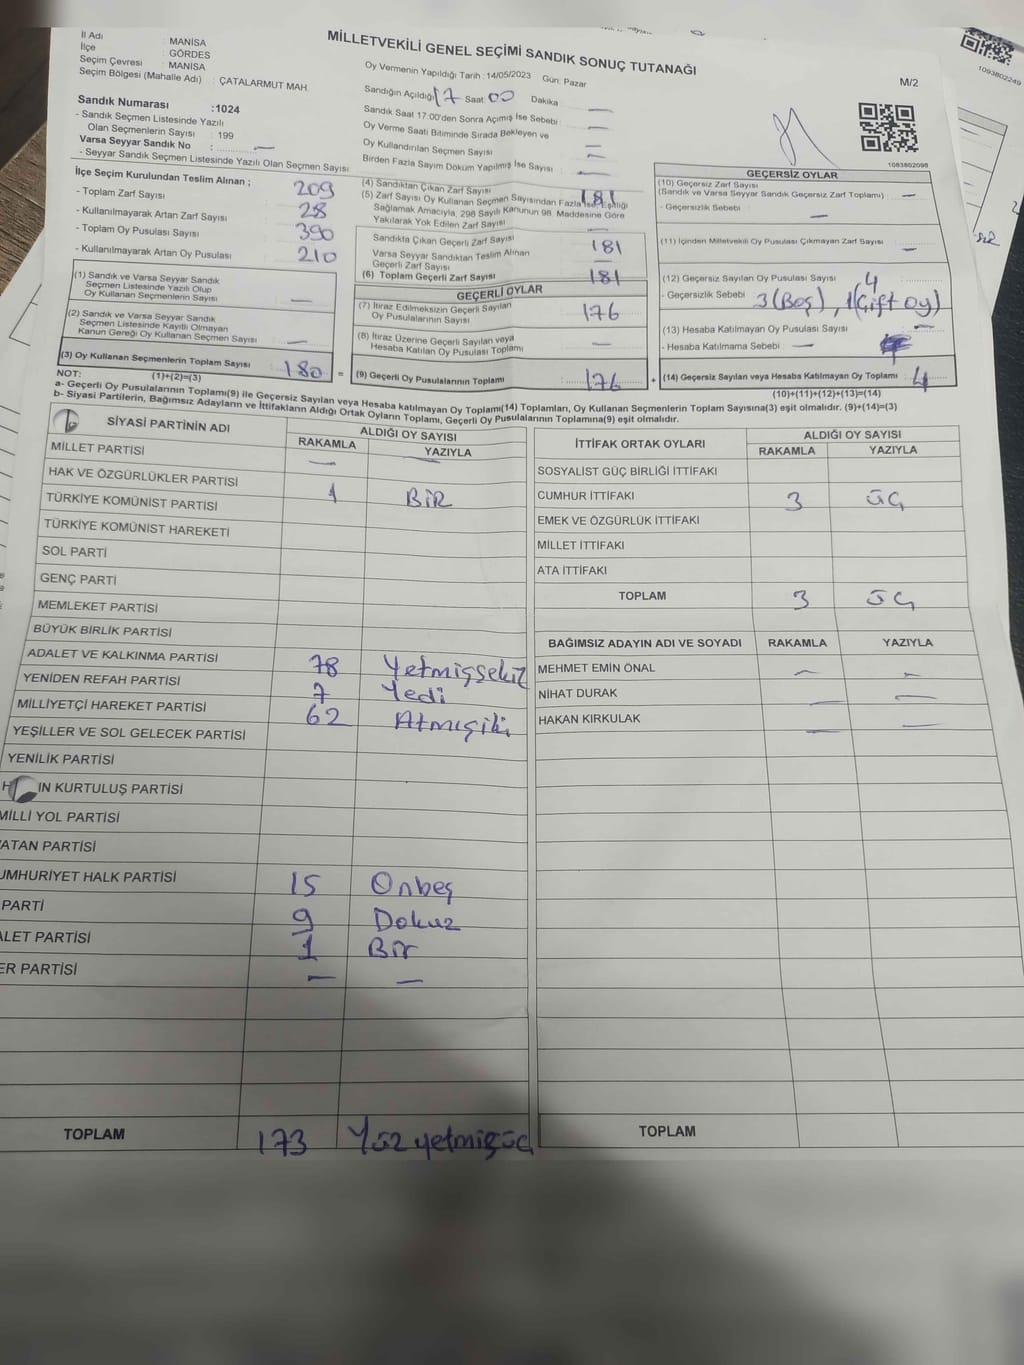 MİLLETVEKİLİ GENEL SEÇİMİ SANDIK SONUÇ TUTANAĞI
M/2
İl Adı : MANİSA
İlçe : GÖRDES
Seçim Çevresi : MANİSA
Seçim Bölgesi (Mahalle Adı) : ÇATALARMUT MAH.
Sandık Numarası :1024
- Sandık Seçmen Listesinde Yazılı
Olan Seçmenlerin Sayısı : 199
Varsa Seyyar Sandık No : —
- Seyyar Sandık Seçmen Listesinde Yazılı Olan Seçmen Sayısı
Oy Vermenin Yapıldığı Tarih : 14/05/2023 Gün: Pazar
Sandığın Açıldığı 17 Saat 00 Dakika —
Sandık Saat 17:00'den Sonra Açımış İse Sebebi : —
Oy Verme Saati Bitiminde Sırada Bekleyen ve
Oy Kullandırılan Seçmen Sayısı : —
Birden Fazla Sayım Döküm Yapılmış İse Sayısı : —
1083802098
1093802249
İlçe Seçim Kurulundan Teslim Alınan ;
- Toplam Zarf Sayısı 209
- Kullanılmayarak Artan Zarf Sayısı 28
- Toplam Oy Pusulası Sayısı 390
- Kullanılmayarak Artan Oy Pusulası 210
(1) Sandık ve Varsa Seyyar Sandık
Seçmen Listesinde Yazılı Olup
Oy Kullanan Seçmenlerin Sayısı —
(2) Sandık ve Varsa Seyyar Sandık
Seçmen Listesinde Kayıtlı Olmayan
Kanun Gereği Oy Kullanan Seçmen Sayısı —
(3) Oy Kullanan Seçmenlerin Toplam Sayısı : 180 =
(1)+(2)=(3)
(4) Sandıktan Çıkan Zarf Sayısı 181
(5) Zarf Sayısı Oy Kullanan Seçmen Sayısından Fazla İse, Eşitliği
Sağlamak Amacıyla, 298 Sayılı Kanunun 98. Maddesine Göre
Yakılarak Yok Edilen Zarf Sayısı —
Sandıkta Çıkan Geçerli Zarf Sayısı 181
Varsa Seyyar Sandıktan Teslim Alınan
Geçerli Zarf Sayısı —
(6) Toplam Geçerli Zarf Sayısı 181
GEÇERLİ OYLAR
(7) İtiraz Edilmeksizin Geçerli Sayılan
Oy Pusulalarının Sayısı : 176
(8) İtiraz Üzerine Geçerli Sayılan veya
Hesaba Katılan Oy Pusulası Toplamı : —
(9) Geçerli Oy Pusulalarının Toplamı : 176 +
GEÇERSİZ OYLAR
(10) Geçersiz Zarf Sayısı
(Sandık ve Varsa Seyyar Sandık Geçersiz Zarf Toplamı) : —
- Geçersizlik Sebebi : —
(11) İçinden Milletvekili Oy Pusulası Çıkmayan Zarf Sayısı : —
(12) Geçersiz Sayılan Oy Pusulası Sayısı : 4
- Geçersizlik Sebebi : 3(Boş), 1(Çift oy)
(13) Hesaba Katılmayan Oy Pusulası Sayısı : —
- Hesaba Katılmama Sebebi : —
(14) Geçersiz Sayılan veya Hesaba Katılmayan Oy Toplamı : 4
(10)+(11)+(12)+(13)=(14)
NOT:
a- Geçerli Oy Pusulalarının Toplamı(9) ile Geçersiz Sayılan veya Hesaba katılmayan Oy Toplamı(14) Toplamları, Oy Kullanan Seçmenlerin Toplam Sayısına(3) eşit olmalıdır. (9)+(14)=(3)
b- Siyasi Partilerin, Bağımsız Adayların ve İttifakların Aldığı Ortak Oyların Toplamı, Geçerli Oy Pusulalarının Toplamına(9) eşit olmalıdır.
SİYASİ PARTİNİN ADI ALDIĞI OY SAYISI
RAKAMLA YAZIYLA
MİLLET PARTİSİ —
HAK VE ÖZGÜRLÜKLER PARTİSİ
TÜRKİYE KOMÜNİST PARTİSİ 1 BİR
TÜRKİYE KOMÜNİST HAREKETİ
SOL PARTİ
GENÇ PARTİ
MEMLEKET PARTİSİ
BÜYÜK BİRLİK PARTİSİ
ADALET VE KALKINMA PARTİSİ 78 Yetmişsekiz
YENİDEN REFAH PARTİSİ 7 Yedi
MİLLİYETÇİ HAREKET PARTİSİ 62 Atmışiki
YEŞİLLER VE SOL GELECEK PARTİSİ
YENİLİK PARTİSİ
H IN KURTULUŞ PARTİSİ
MİLLİ YOL PARTİSİ
ATAN PARTİSİ
UMHURİYET HALK PARTİSİ 15 Onbeş
PARTİ 9 Dokuz
ALET PARTİSİ 1 Bir
ER PARTİSİ — —
TOPLAM 173 Yüz yetmişüç
İTTİFAK ORTAK OYLARI ALDIĞI OY SAYISI
RAKAMLA YAZIYLA
SOSYALİST GÜÇ BİRLİĞİ İTTİFAKI
CUMHUR İTTİFAKI 3 ÜÇ
EMEK VE ÖZGÜRLÜK İTTİFAKI
MİLLET İTTİFAKI
ATA İTTİFAKI
TOPLAM 3 ÜÇ
BAĞIMSIZ ADAYIN ADI VE SOYADI RAKAMLA YAZIYLA
MEHMET EMİN ÖNAL — —
NİHAT DURAK — —
HAKAN KIRKULAK — —
TOPLAM